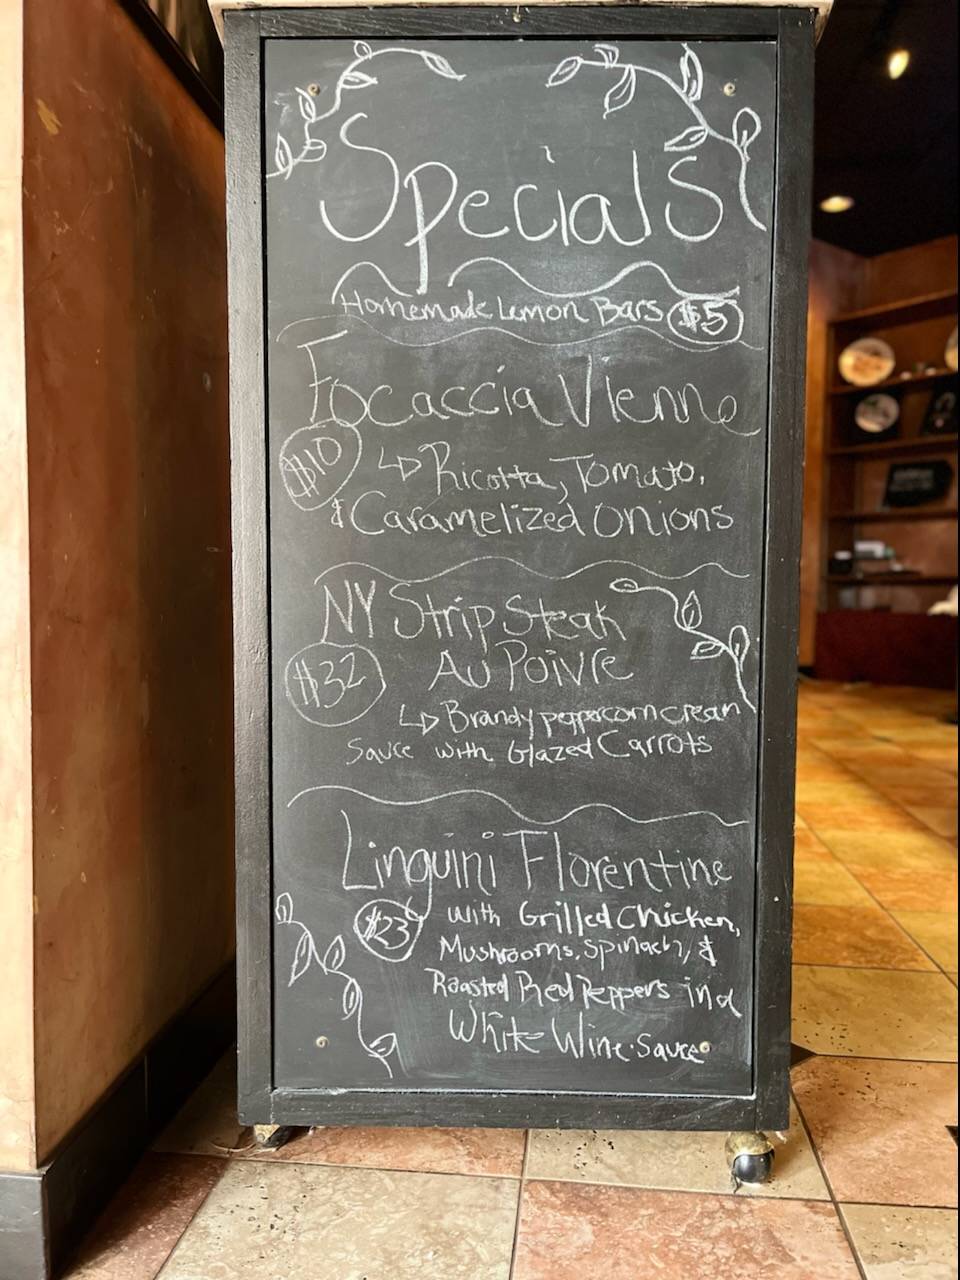 Specials
Homemade Lemon Bars $5
Focaccia Vienne
$10
Ricotta, Tomato,
& Caramelized Onions
NY Strip Steak
$32
Au Poivre
Brandy peppercorn cream
Sauce with Glazed Carrots
Linguini Florentine
$23
with Grilled Chicken,
Mushrooms, Spinach, &
Roasted Red Peppers in a
White Wine Sauce